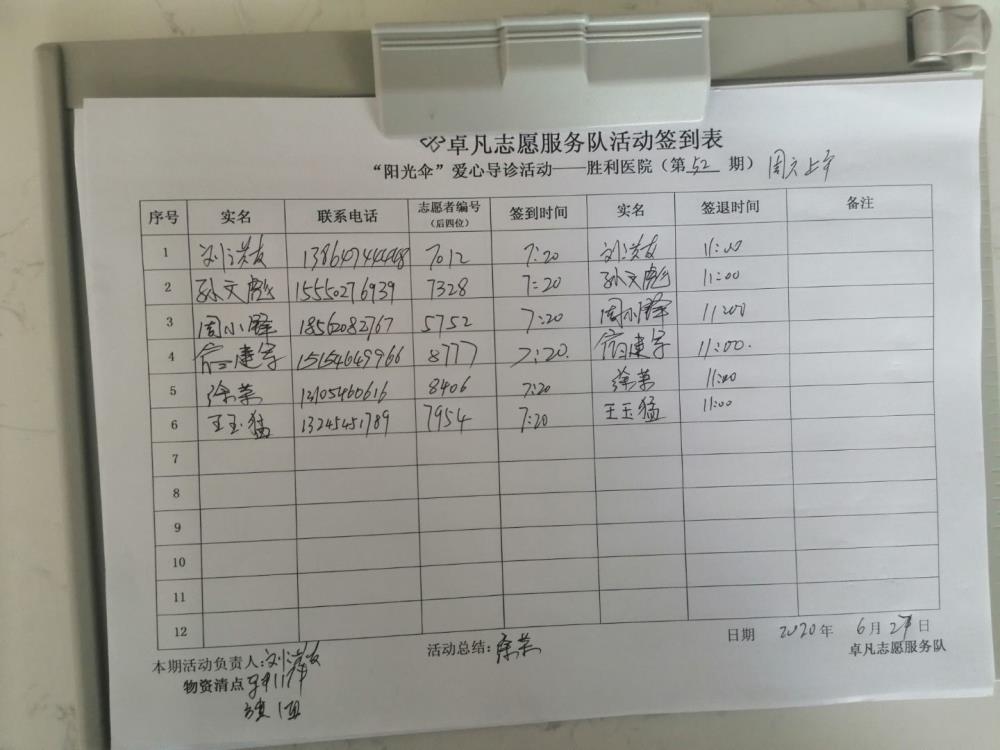 卓凡志愿服务队活动签到表
“阳光伞”爱心导诊活动——胜利医院（第 52 期） 周六上午
序号 实名 联系电话 志愿者编号（后四位） 签到时间 实名 签退时间 备注
1 刘洪友 13864744448 7012 7:20 刘洪友 11:00
2 孙文彪 15550276939 7328 7:20 孙文彪 11:00
3 周小锋 18562082767 5752 7:20 周小锋 11:00
4 信建学 15154649966 8777 7:20. 信建学 11:00.
5 徐荣 13105460616 8406 7:20 徐荣 11:00
6 王玉猛 13245451789 7954 7:20 王玉猛 11:00
7
8
9
10
11
12
日期 2020年 6月 27日
本期活动负责人:刘洪友 活动总结:徐荣 卓凡志愿服务队
物资清点